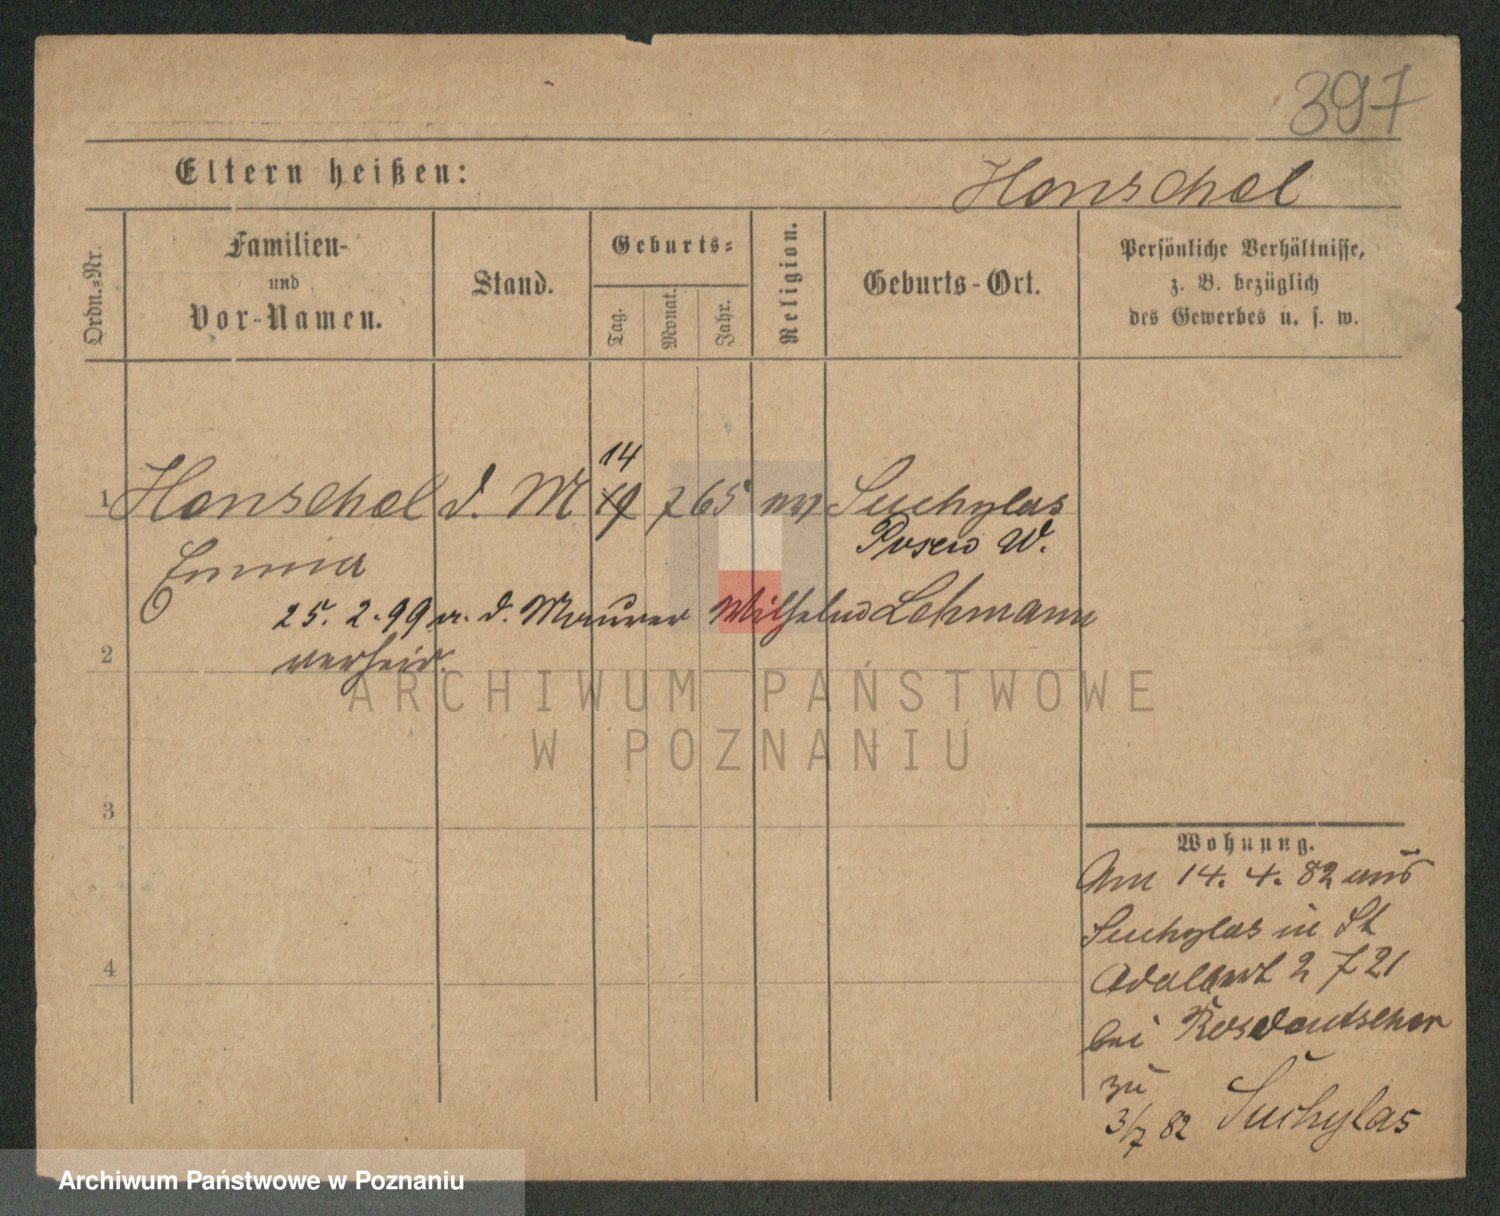 397
Eltern heißen:
Henschel
Ordn.-Nr.
Familien-
und
Vor-Namen.
Stand.
Geburts-
Tag.
Monat.
Jahr.
Religion.
Geburts-Ort.
Persönliche Verhältnisse,
z. B. bezüglich
des Gewerbes u. s. w.
14
1 Henschel d. M 19 7 65 ev Suchylas
Emma Posen W.
25. 2. 99 m. d. Maurer Wilhelm Lehmann
2 verheir.
ARCHIWUM PAŃSTWOWE
W POZNANIU
3
4
Wohnung.
Am 14. 4. 82 aus
Suchylas in St
Adalbert 2 721
bei
zu
3/7 82 Suchylas
Archiwum Państwowe w Poznaniu